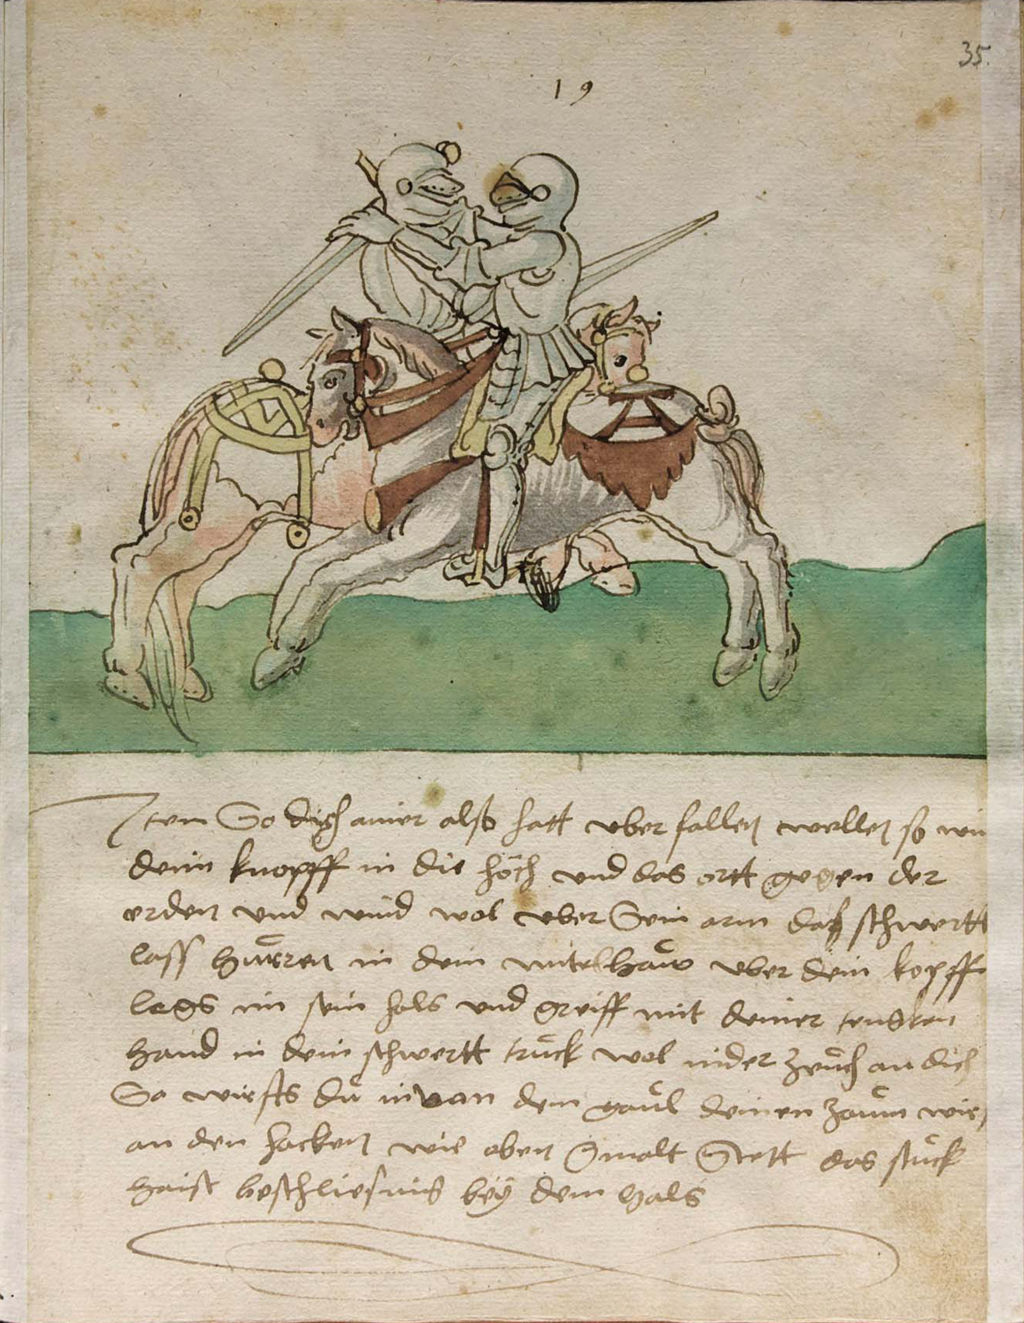 35.
19
Item So dich ainer alsß hatt uber fallen wellen so
deinn knopff in die höch und das ortt gegen der
erden und wind wol uber Sein arm das schwertt
lass in dein uber dein kopff
legs im sein hals und greiff mit deiner
hand in dein schwertt truck wol nider zeuch an dich
So wirfsts du in van dem gaul deinen zaum wirf
an den hacken wie oben Stett das stuck
haist beschliesung bey dem hals